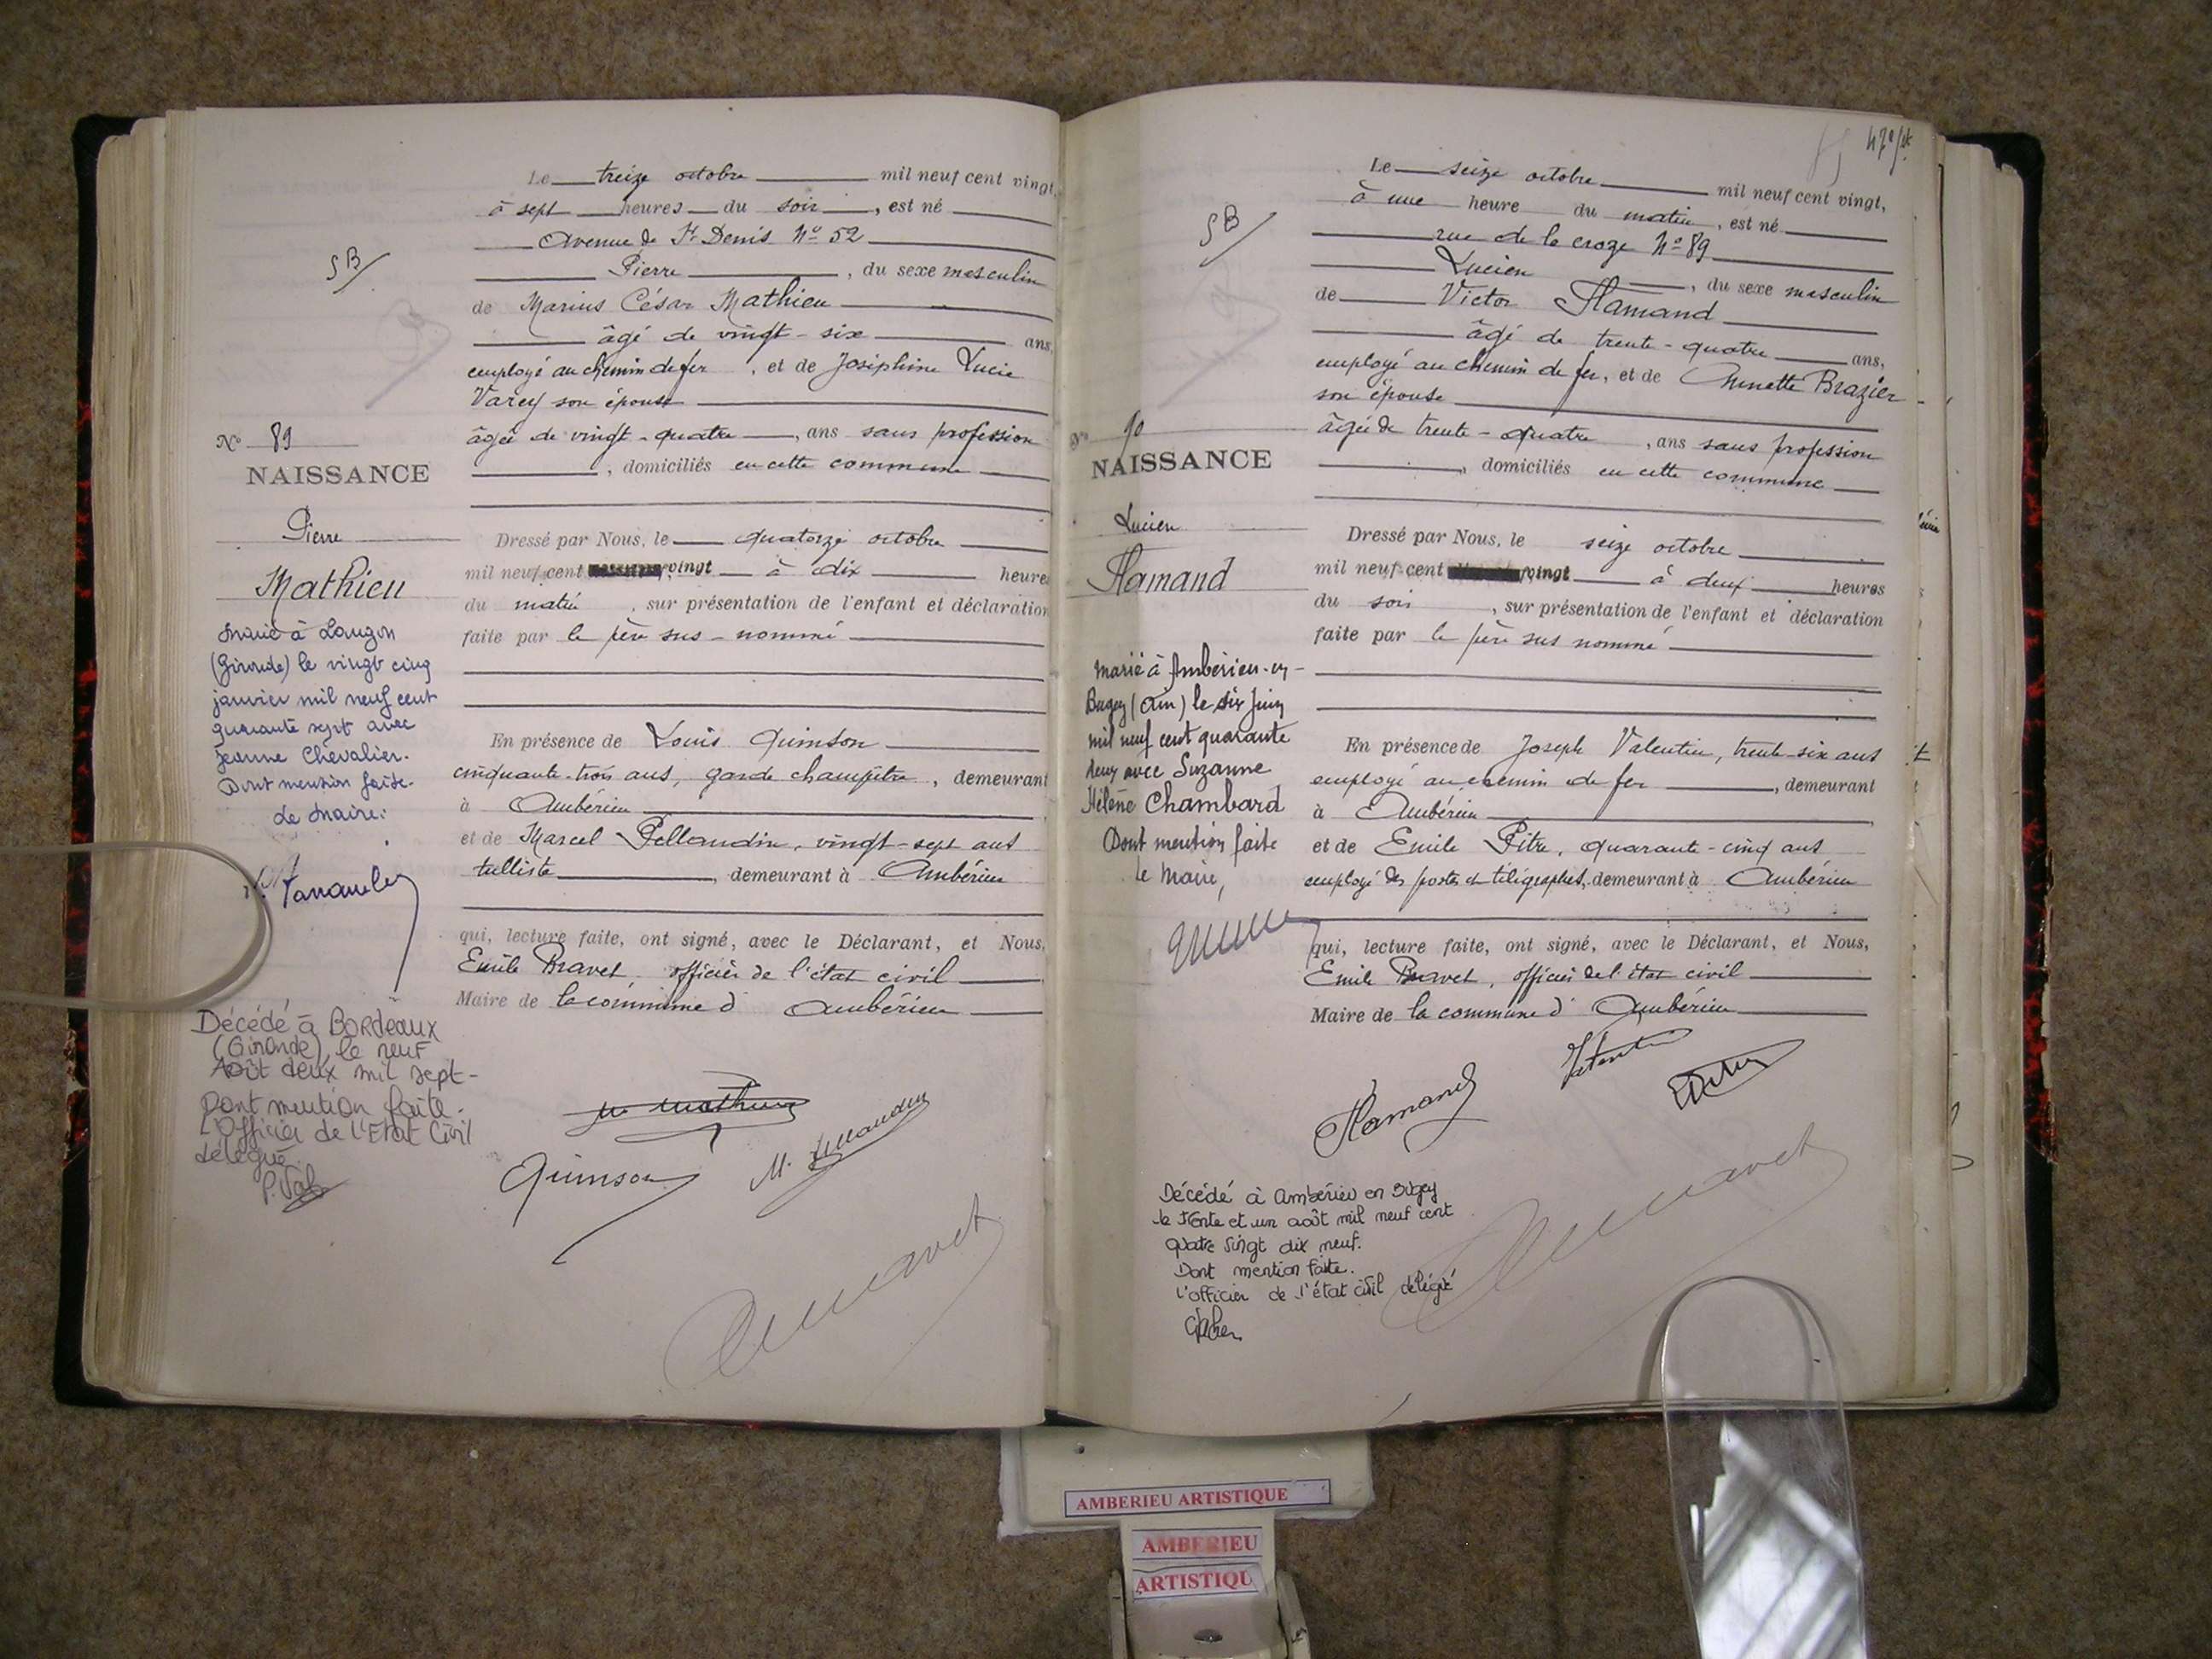 Le treize octobre mil neuf cent vingt,
à sept heures du soir, est né
Avenue de St Denis No 52
Pierre, du sexe masculin
de Marius César Mathieu
âgé de vingt-six ans,
employé au chemin de fer, et de Joséphine Lucie
Varey son épouse
âgée de vingt-quatre, ans sans profession
, domiciliés en cette commune
SB/
No 89
NAISSANCE
Pierre
Mathieu
Marié à Langon
(Gironde) le vingt cinq
janvier mil neuf cent
quarante sept avec
Jeanne Chevalier.
Dont mention faite.
Le Maire:
Décédé à Bordeaux
(Gironde), le neuf
Août deux mil sept-
Dont mention faite.
L'Officier de l'Etat Civil
délégué
Dressé par Nous, le quatorze octobre
mil neuf cent vingt à dix heures
du matin, sur présentation de l'enfant et déclaration
faite par le père sus-nommé
En présence de Louis Quinson
cinquante-trois ans, garde champêtre, demeurant
à Ambérieu
et de Marcel Pellaudin, vingt-sept ans
tulliste, demeurant à Ambérieu
qui, lecture faite, ont signé, avec le Déclarant, et Nous,
Emile Bravet, officier de l'état civil
Maire de la commune d'Ambérieu
M Mathieu
Quinson
47e/
Le seize octobre mil neuf cent vingt,
à une heure du matin, est né
rue de la croze No 89
Lucien, du sexe masculin
de Victor Flamand
âgé de trente-quatre ans,
employé au chemin de fer, et de Annette Brazier
son épouse
âgée de trente-quatre, ans sans profession
, domiciliés en cette commune
SB/
No 90
NAISSANCE
Lucien
Flamand
Marié à Ambérieu-en-
Bugey (Ain) le six Juin
mil neuf cent quarante
deux avec Suzanne
Hélène Chambard
Dont mention faite
Le Maire,
Dressé par Nous, le seize octobre
mil neuf cent vingt à deux heures
du soir, sur présentation de l'enfant et déclaration
faite par le père sus nommé
En présence de Joseph Valentin, trente-six ans
employé au chemin de fer, demeurant
à Ambérieu
et de Emile Pitre, quarante-cinq ans
employé des postes et télégraphes, demeurant à Ambérieu
qui, lecture faite, ont signé, avec le Déclarant, et Nous,
Emile Bravet, officier de l'état civil
Maire de la commune d'Ambérieu
Flamand
Valentin
Décédé à Ambérieu en Bugey
le trente et un août mil neuf cent
quatre vingt dix neuf.
Dont mention faite.
L'officier de l'état civil délégué
AMBERIEU ARTISTIQUE
AMBERIEU
ARTISTIQU